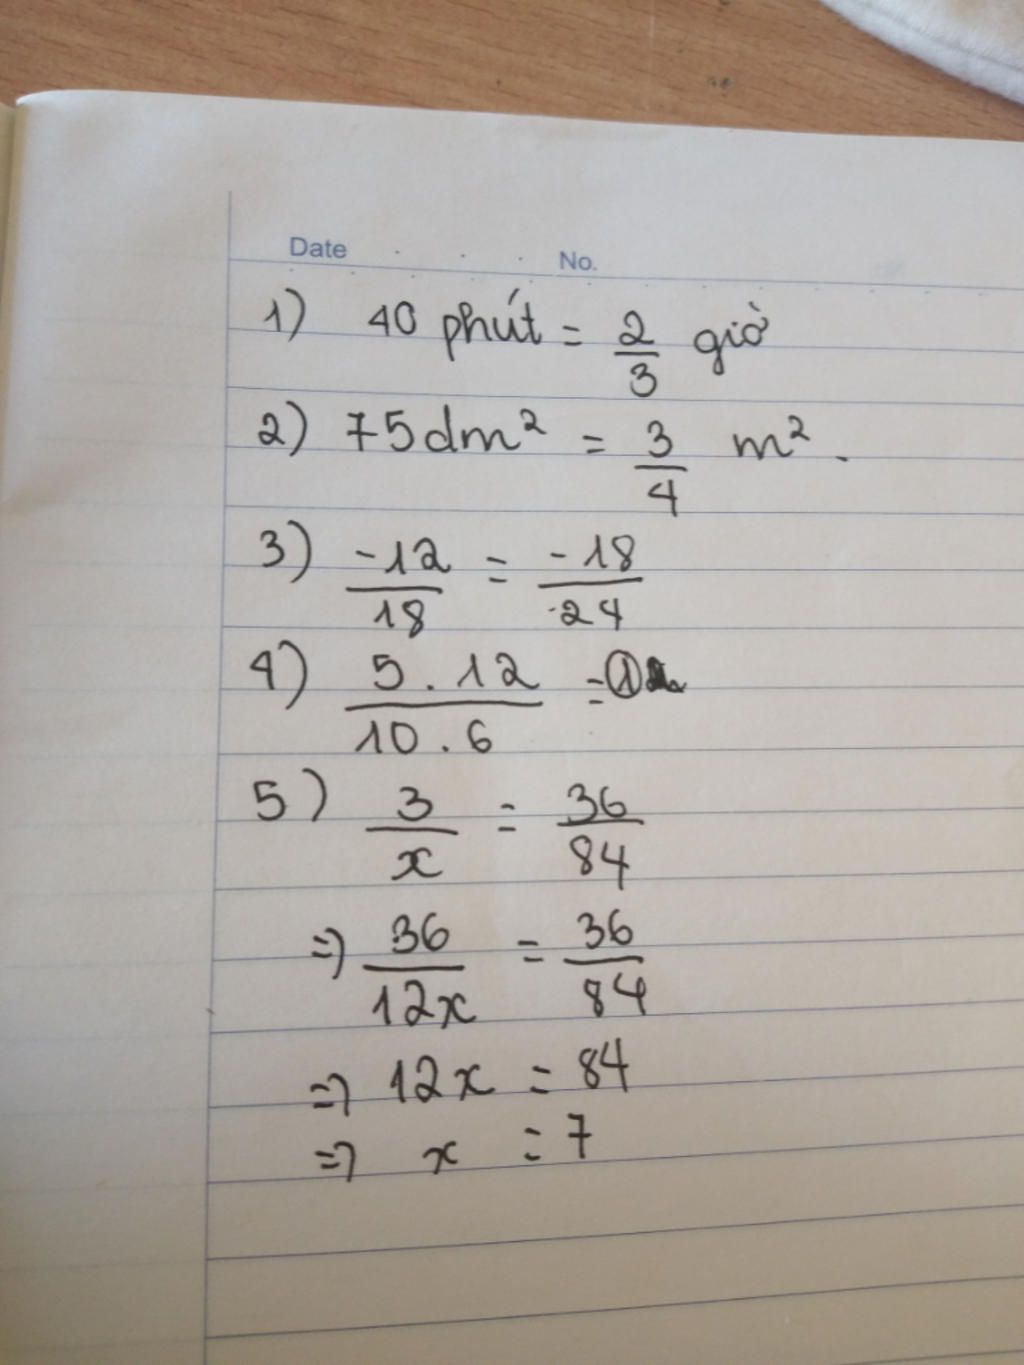 Date No.
1) 40 phút = 2/3 giờ
2) 75dm² = 3/4 m².
3) -12/18 = -18/24
4) 5.12/10.6 = 1
5) 3/x = 36/84
=> 36/12x = 36/84
=> 12x = 84
=> x = 7